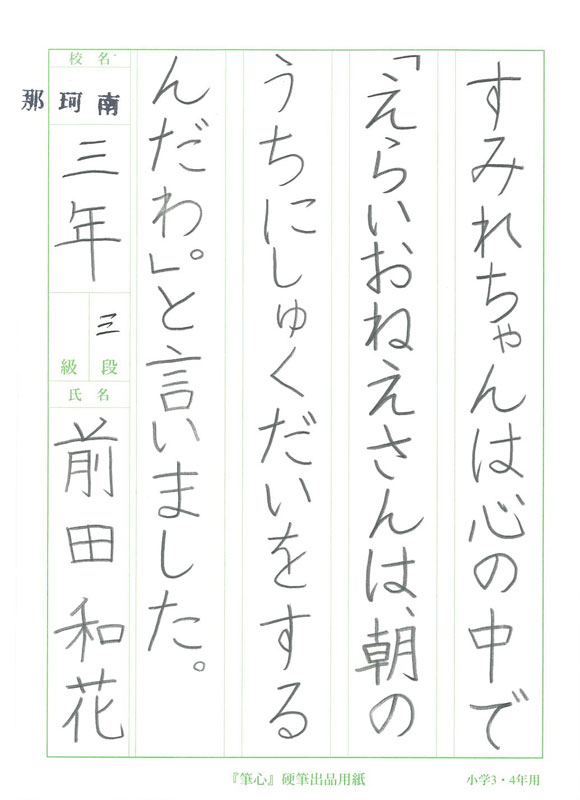 すみれちゃんは心の中で
「えらいおねえさんは、朝の
うちにしゅくだいをする
んだわ。」と言いました。
校名
那珂南
三年
三
級段
氏名
前田和花
『筆心』硬筆出品用紙
小学3・4年用